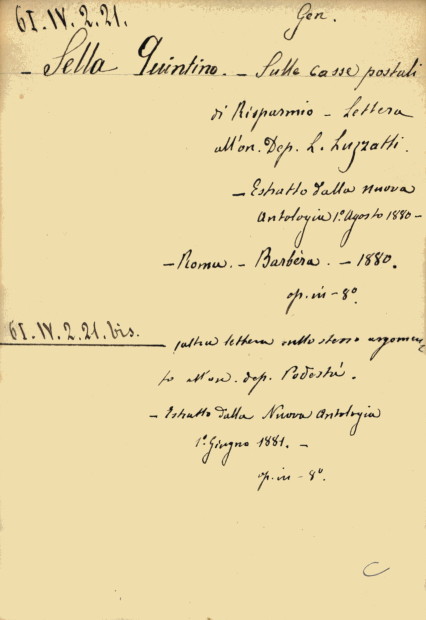 61.IV.2.21.
Gen.
- Sella Quintino. - Sulle casse postali
di Risparmio - Lettera
all'on. Dep. L. Luzzatti.
- Estratto dalla nuova
Antologia 1º Agosto 1880 -
- Roma. - Barbèra. - 1880.
op. in - 8º
61.IV.2.21.bis.
(altra lettera sullo stesso argomen
to all'on. dep. Podestà.
- Estratto dalla Nuova Antologia
1º Giugno 1881. -
op. in - 8º.
C